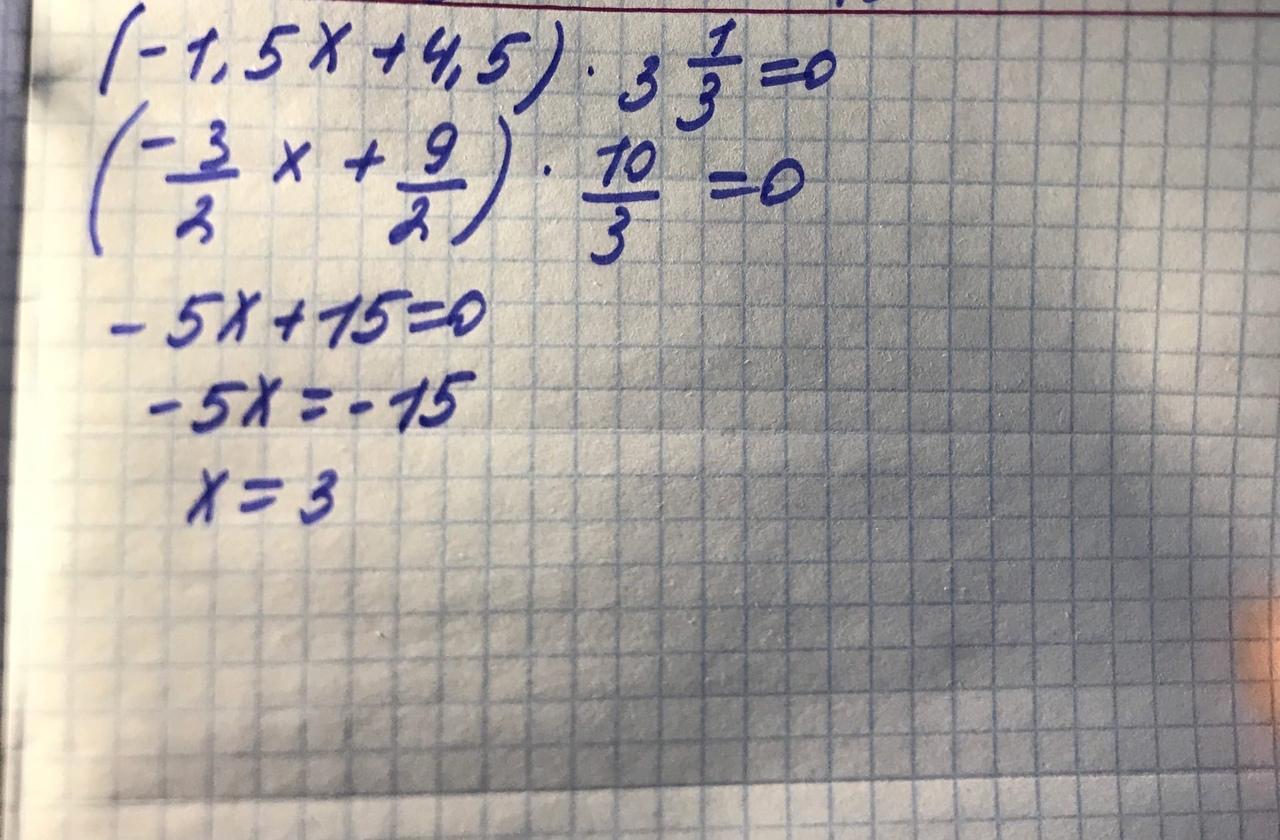 (-1,5x+4,5) · 3 1/3 =0
(-3/2 x + 9/2) · 10/3 =0
-5x+15=0
-5x=-15
x=3